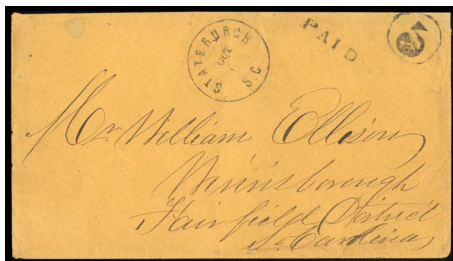 STATEBURGH
OCT
S.C
PAID
Mr. William Ellison
Winnsborough
Fairfield District
So. Carolina